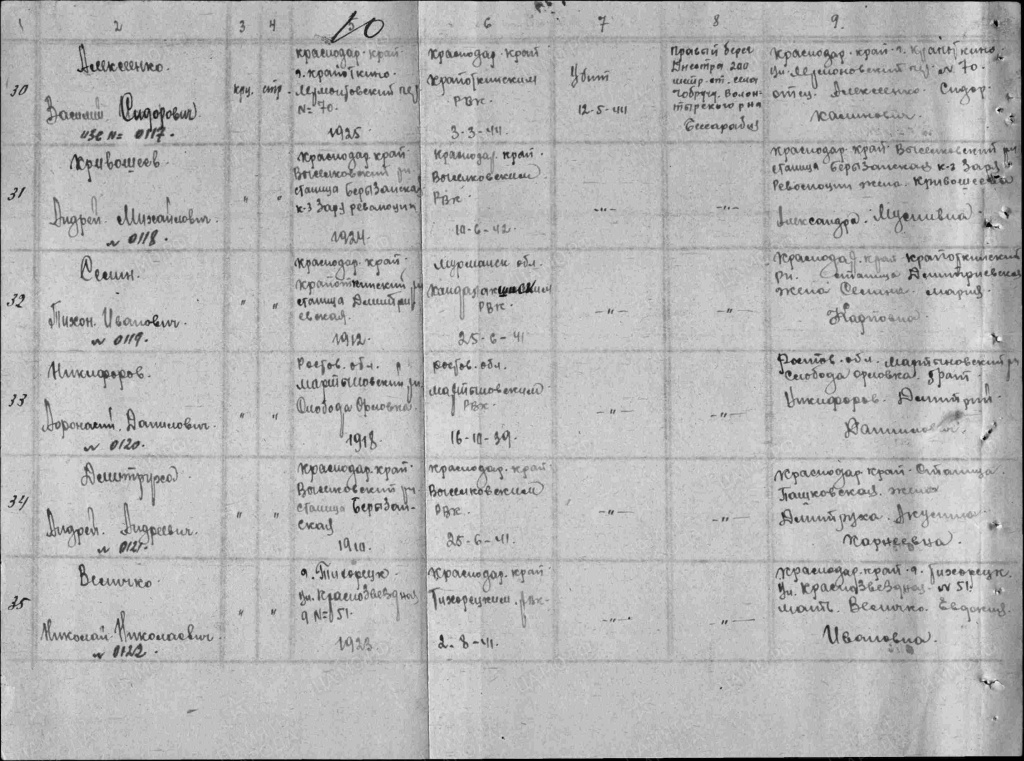 1 2 3 4 5 6 7 8 9.
10
30
Алексеенко.
Василий Сидорович
изв № 0117.
кр-ц. стр.
Краснодар. край.
г. Кропоткино.
№ 70.
1925
Краснодар. край
Кропоткинским
РВК.
3-3-44.
Убит
12-5-44
Правый берег
Днестра 200
метр. от. села
Бессарабия
Краснодар. край. г. Кропоткино
№ 70.
отец. Алексеенко Сидор.
31
Кривошеев.
Андрей. Михайлович.
№ 0118.
" "
Краснодар край.
Выселковский р-н
станица Берызанская
к-з Заря революции
1924.
Краснодар. край.
Выселковским
РВК.
10-6-42.
-"-
-"-
Краснодар край Выселковский р-н
станица Берызанская к-з Заря
Революции жена. Кривошеева
Александра.
32
Селин.
Тихон. Иванович.
№ 0119.
" "
Краснодар. край.
Кропоткинский р-н
станица Дмитри-
евская.
1912.
Мурманск обл.
Кандалакшским
РВК.
25-6-41
-"-
-"-
Краснодар. край Кропоткинский
рн. станица Дмитриевская
жена Селина. Мария.
Карповна.
33
Никифоров.
Афонасий. Данилович.
№ 0120.
" "
Ростов. обл.
Мартыновский р-н
Слобода Орловка.
1918.
Ростов. обл.
Мартыновским
РВК.
16-10-39.
-"-
-"-
Ростов. обл. Мартыновский р-н
Слобода Орловка. брат.
Никифоров. Дмитрий
Данилович.
34
Дмитруха
Андрей. Андреевич.
№ 0121.
" "
Краснодар. край.
Выселковский р-н
станица Берызан-
ская
1910.
Краснодар. край.
Выселковским
РВК.
25-6-41.
-"-
-"-
Краснодар край. Станица
Пашковская. жена
Дмитруха. Акулина
Карнеевна.
35
Величко
Николай. Николаевич.
№ 0122.
" "
г. Тихорецк.
ул. Краснозвездная
д № 51.
1923.
Краснодар. край.
Тихорецким. рвк.
2-8-41.
-"-
-"-
Краснодар. край. г. Тихорецк.
ул. Краснозвездная. № 51.
мать. Величко. Евдокия.
Ивановна.